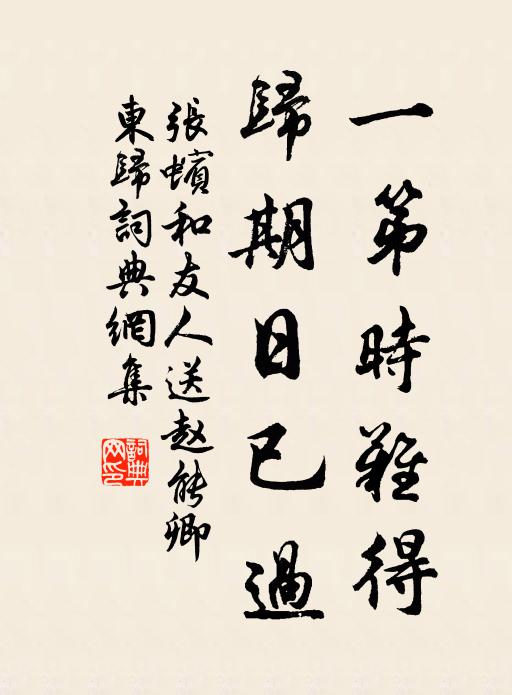 一第時難得
歸期日已過
張蠙和友人送赵能卿
東歸詞典網集
詞典
网印